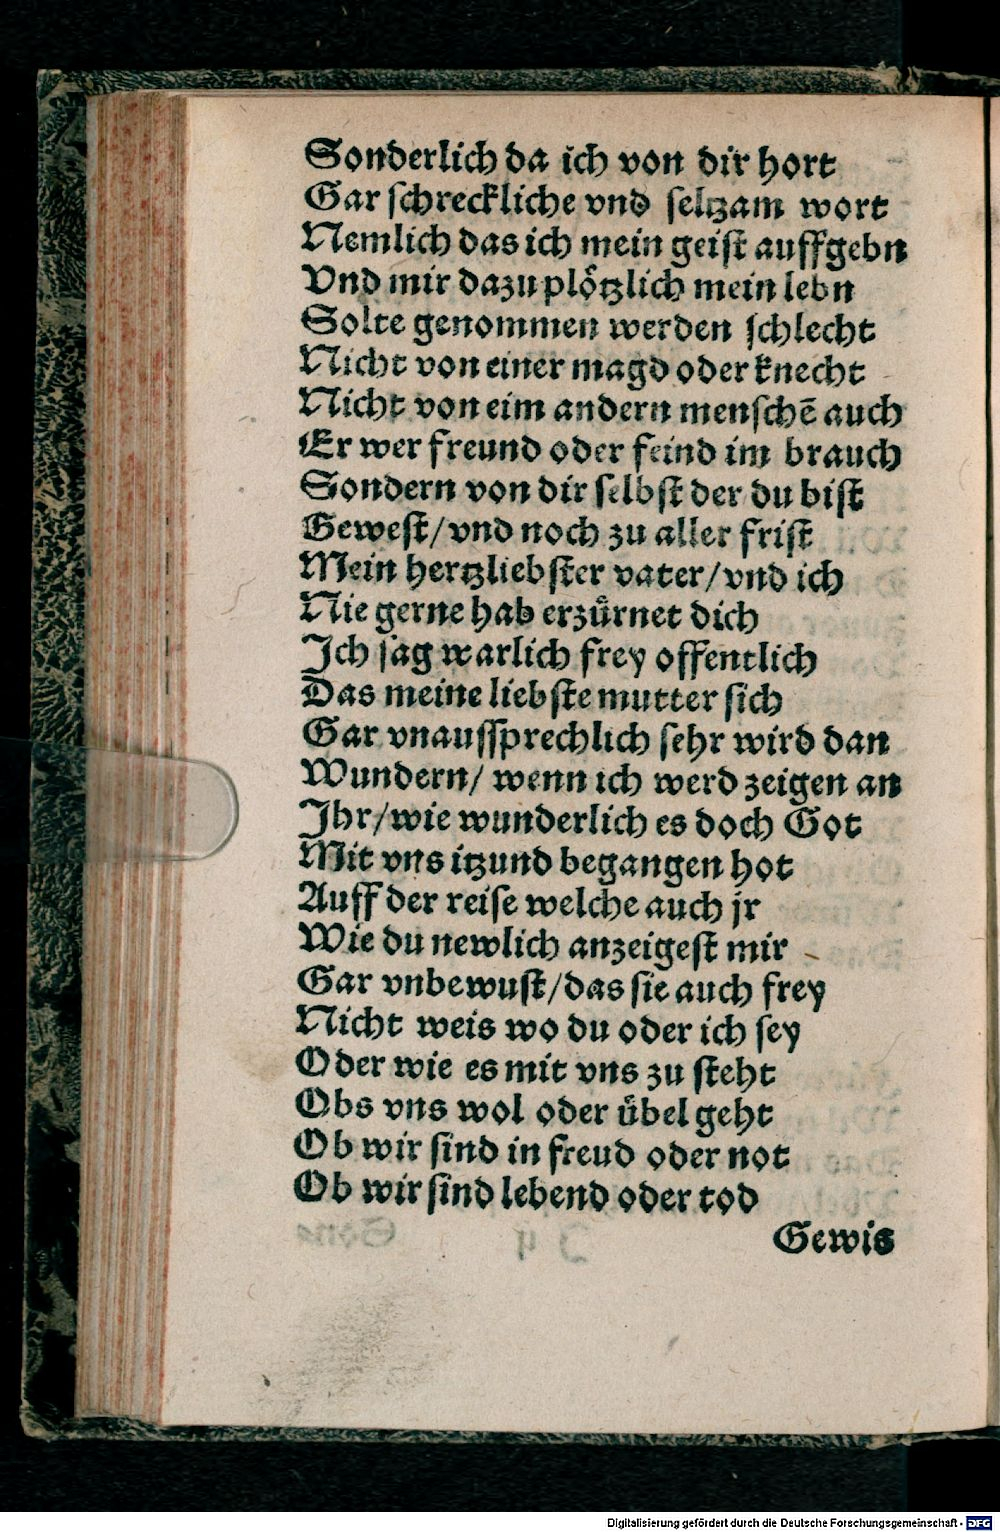 Sonderlich da ich von dir hort
Gar schreckliche vnd seltzam wort
Nemlich das ich mein geist auffgebn
Vnd mir dazu plötzlich mein lebn
Solte genommen werden schlecht
Nicht von einer magd oder knecht
Nicht von eim andern menschē auch
Er wer freund oder feind im brauch
Sondern von dir selbst der du bist
Gewest/vnd noch zu aller frist
Mein hertzliebster vater/vnd ich
Nie gerne hab erzürnet dich
Ich sag warlich frey offentlich
Das meine liebste mutter sich
Gar vnaussprechlich sehr wird dan
Wundern/ wenn ich werd zeigen an
Ihr/wie wunderlich es doch Got
Mit vns itzund begangen hot
Auff der reise welche auch jr
Wie du newlich anzeigest mir
Gar vnbewust/das sie auch frey
Nicht weis wo du oder ich sey
Oder wie es mit vns zu steht
Obs vns wol oder übel geht
Ob wir sind in freud oder not
Ob wir sind lebend oder tod
Gewis
Digitalisierung gefördert durch die Deutsche Forschungsgemeinschaft - DFG